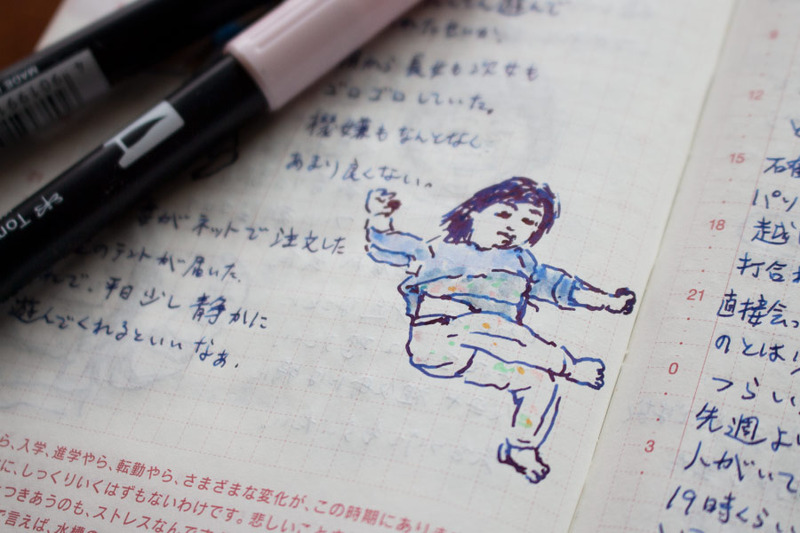 遊んで
長女も次女も
ゴロゴロしていた。
機嫌もなんとなく
あまり良くない。
がネットで注文した
のテントが届いた。
で、平日少し静かに
遊んでくれるといいなぁ。
ら、入学、進学やら、転勤やら、さまざまな変化が、この時期にありま
に、しっくりいくはずもないわけです。悲しいことも
つきあうのも、ストレスなんです
で言えば、水槽の
9
12
15
18
21
0
3
パソ
越し
打合
直接会っ
のとは
つらい
先週よ
人がいて
19時くら
MADE
Tom